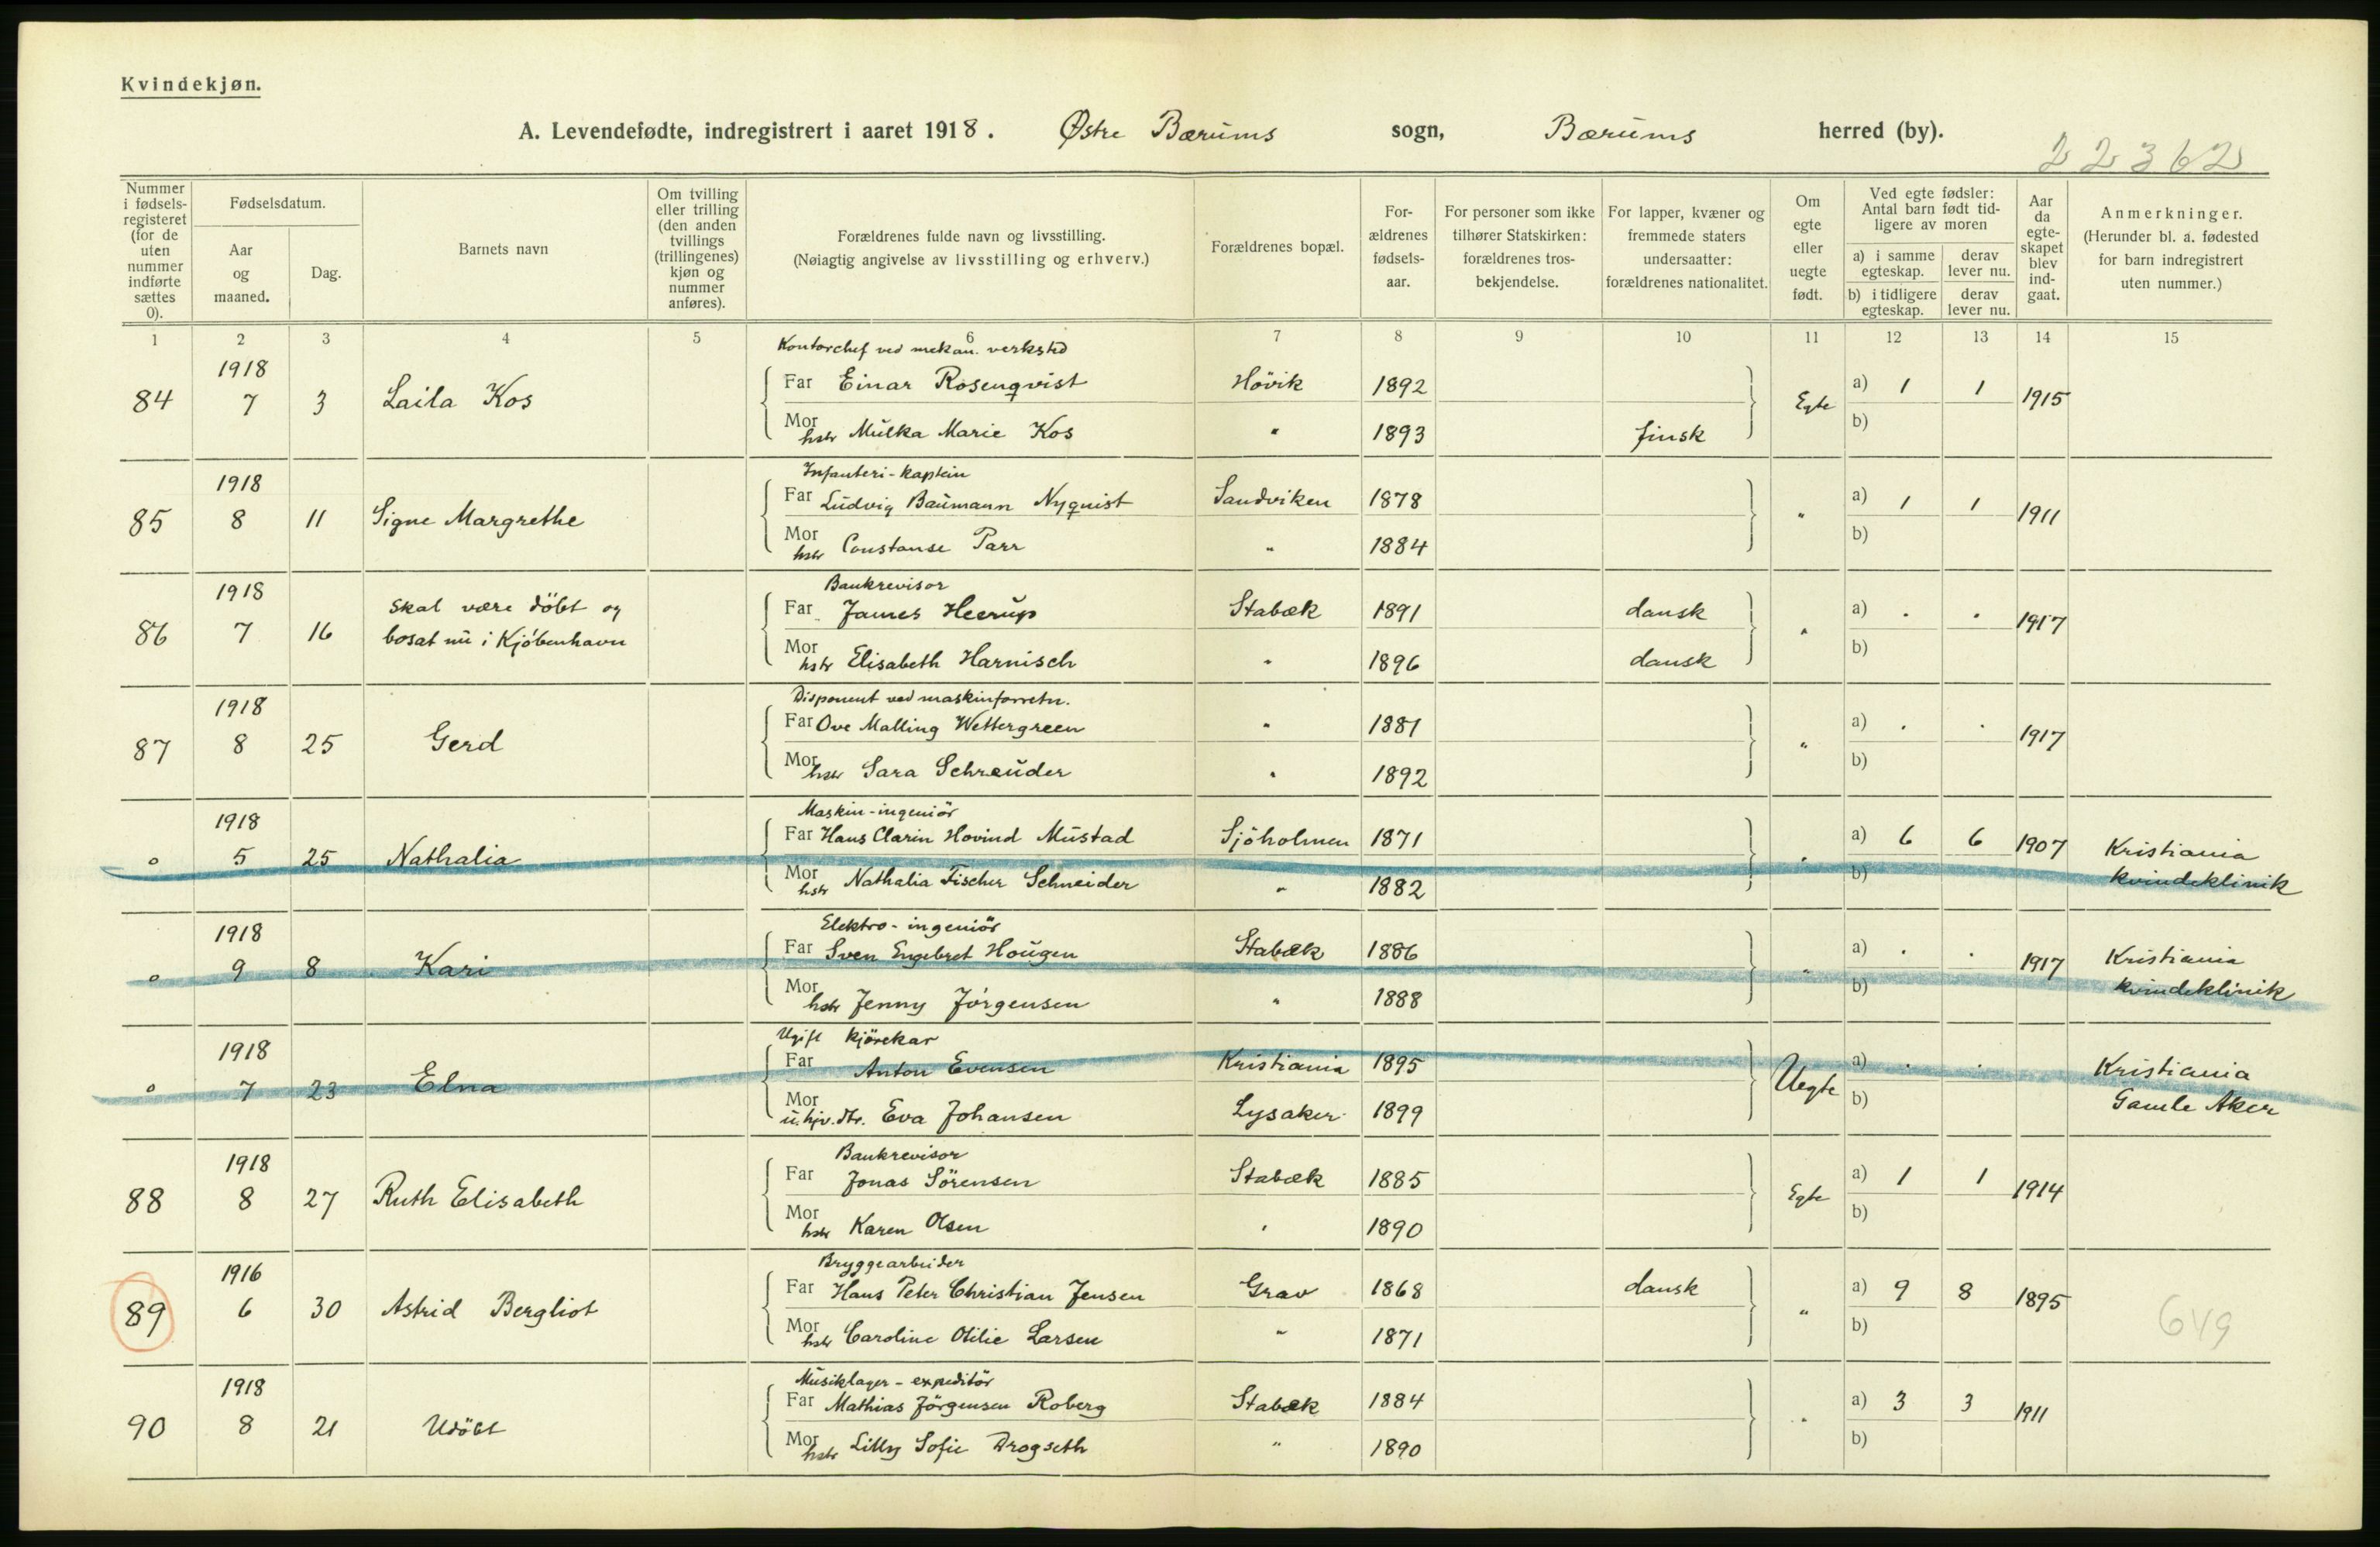 Kvindekjøn.
A. Levendefødte, indregistrert i aaret 1918. Østre Bærums sogn, Bærums herred (by).
22362
Nummer i fødsels-registeret (for de uten nummer indførte sættes 0).
Fødselsdatum.
Aar og maaned.
Dag.
Barnets navn
Om tvilling eller trilling (den anden tvillings (trillingenes) kjøn og nummer anføres).
Forældrenes fulde navn og livsstilling.
(Nøiagtig angivelse av livsstilling og erhverv.)
Forældrenes bopæl.
For-ældrenes fødsels-aar.
For personer som ikke tilhører Statskirken: forældrenes tros-bekjendelse.
For lapper, kvæner og fremmede staters undersaatter: forældrenes nationalitet.
Om egte eller uegte født.
Ved egte fødsler: Antal barn født tid-ligere av moren
a) i samme egteskap. derav lever nu.
b) i tidligere egteskap. derav lever nu.
Aar da egte-skapet blev ind-gaat.
Anmerkninger.
(Herunder bl. a. fødested for barn indregistrert uten nummer.)
1 2 3 4 5 6 7 8 9 10 11 12 13 14 15
Kontorchef ved mekan. verksted
1918
84 7 3 Laila Kos Far Einar Rosenqvist Hövik 1892 Egte a) 1 1 1915
Mor hstr Mulka Marie Kos " 1893 finsk b)
Infanteri-kaptein
1918
85 8 11 Signe Margrethe Far Ludvig Baumann Nyquist Sandviken 1878 " a) 1 1 1911
Mor hstr Constanse Parr " 1884 b)
Bankrevisor
1918
86 7 16 Skal være döbt og bosat nu i Kjöbenhavn Far James Heerup Stabæk 1891 dansk " a) . . 1917
Mor hstr Elisabeth Harnisch " 1896 dansk b)
Disponent ved maskinforretn.
1918
87 8 25 Gerd Far Ove Malling Wettergreen " 1881 " a) . . 1917
Mor hstr Sara Schreuder " 1892 b)
Maskin-ingeniör
1918
0 5 25 Nathalia Far Hans Clarin Hovind Mustad Sjöholmen 1871 " a) 6 6 1907 Kristiania
Mor hstr Nathalia Fischer Schneider " 1882 b) kvindeklinik
Elektro-ingeniör
1918
0 9 8 Kari Far Sven Engebret Hougen Stabæk 1886 " a) . . 1917 Kristiania
Mor hstr Jenny Jörgensen " 1888 b) kvindeklinik
Ugift kjörekar
1918
0 7 23 Elna Far Anton Evensen Kristiania 1895 Uegte a) . . Kristiania
Mor u. hjv. dtr. Eva Johansen Lysaker 1899 b) Gamle Aker
Bankrevisor
1918
88 8 27 Ruth Elisabeth Far Jonas Sörensen Stabæk 1885 Egte a) 1 1 1914
Mor hstr Karen Olsen " 1890 b)
Bryggearbeider
1916
89 6 30 Astrid Bergliot Far Hans Peter Christian Jensen Grav 1868 dansk " a) 9 8 1895 649
Mor hstr Caroline Otilie Larsen " 1871 b)
Musiklager-expeditör
1918
90 8 21 Udöbt Far Mathias Jörgensen Roberg Stabæk 1884 " a) 3 3 1911
Mor hstr Lilly Sofie Drogseth " 1890 b)